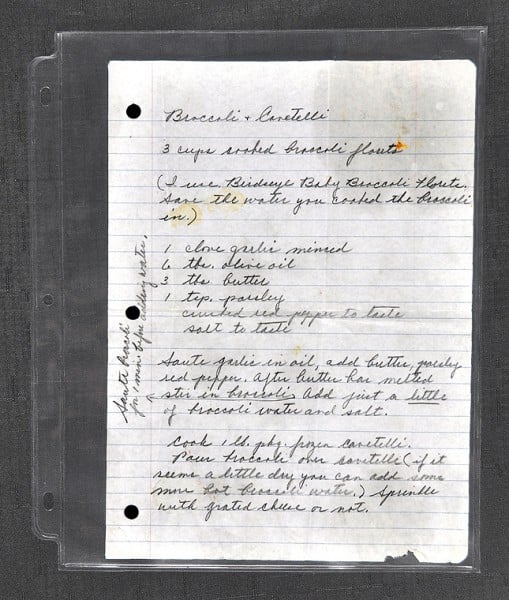 Broccoli + Cavetelli
3 cups cooked broccoli florets
(I use Birdseye Baby Broccoli Florets.
Save the water you cooked the broccoli
in.)
1 clove garlic minced
6 tbs. olive oil
3 tbs butter
1 tsp. parsley
crushed red pepper to taste
salt to taste
Saute garlic in oil, add butter, parsley
red pepper. After butter has melted
stir in broccoli. Add just a little
of broccoli water and salt.
Cook 1 lb. pkg. frozen cavetelli.
Pour broccoli over cavetelli (if it
seems a little dry you can add some
more hot broccoli water.) Sprinkle
with grated cheese or not.
Saute broccoli
for 1 min. before adding water.